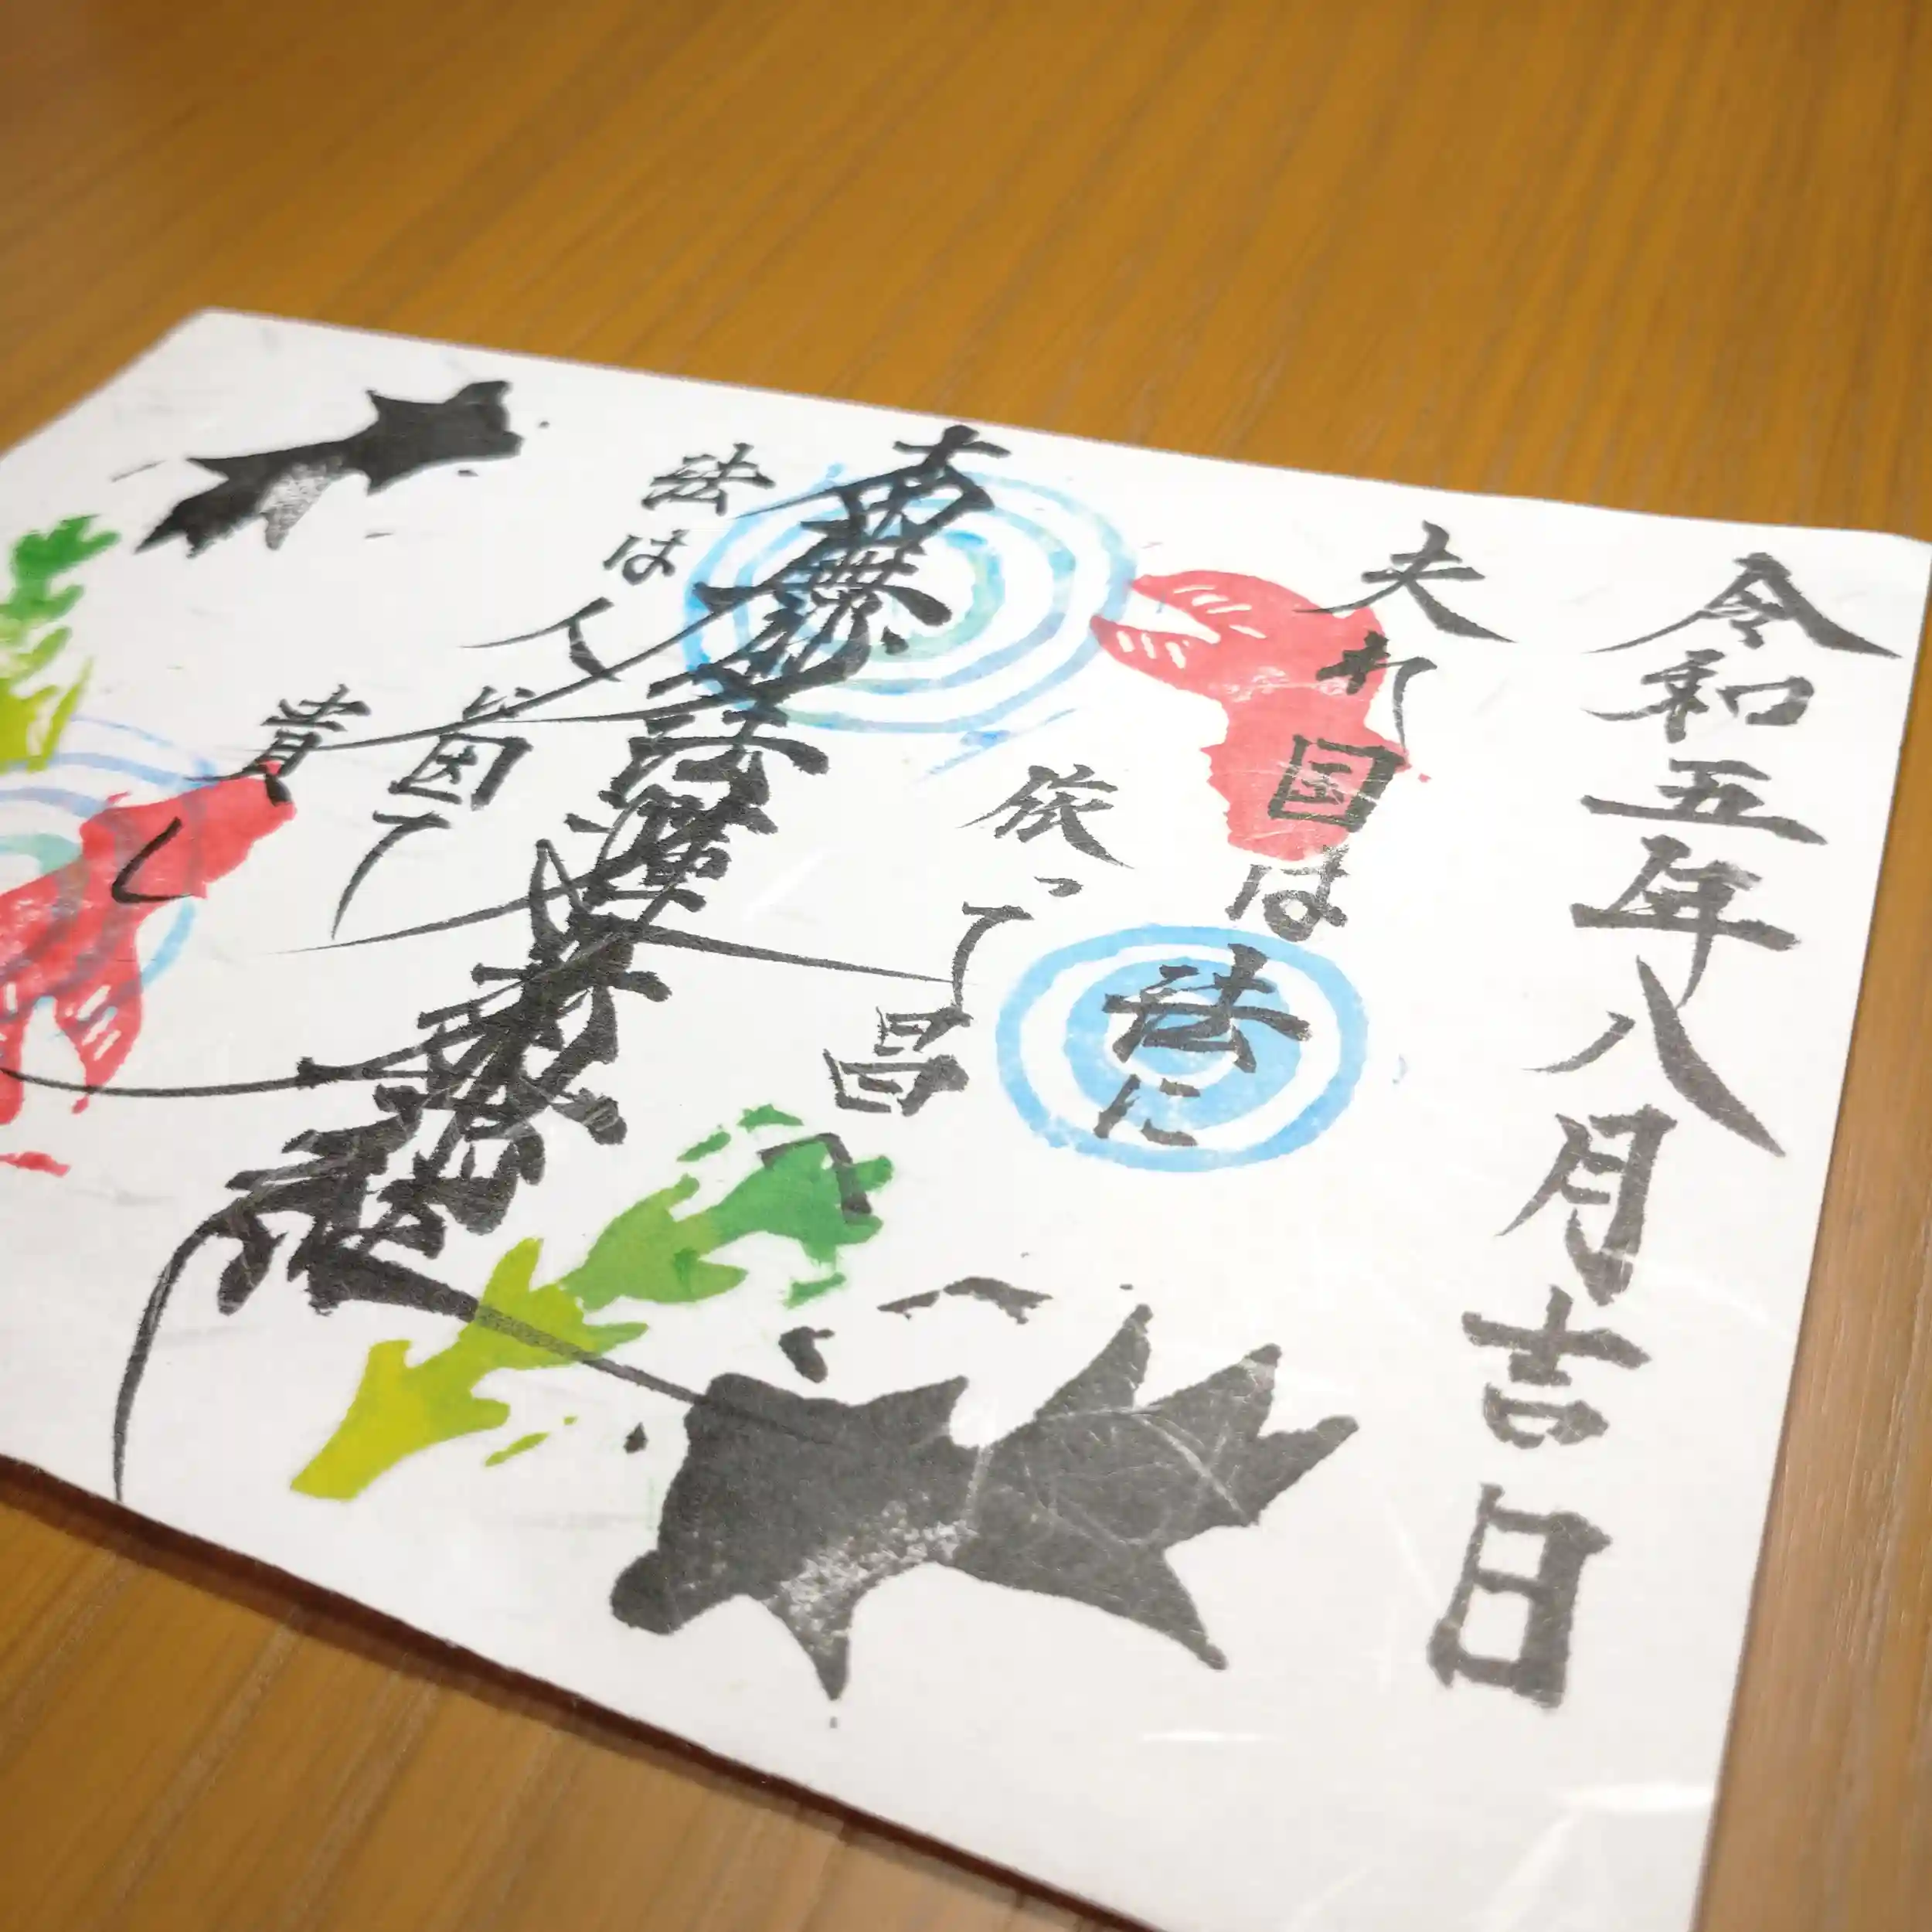 令和五年八月吉日
夫れ国は法に
依って昌へ
南無妙法蓮華経
法は人
に因て
貴し